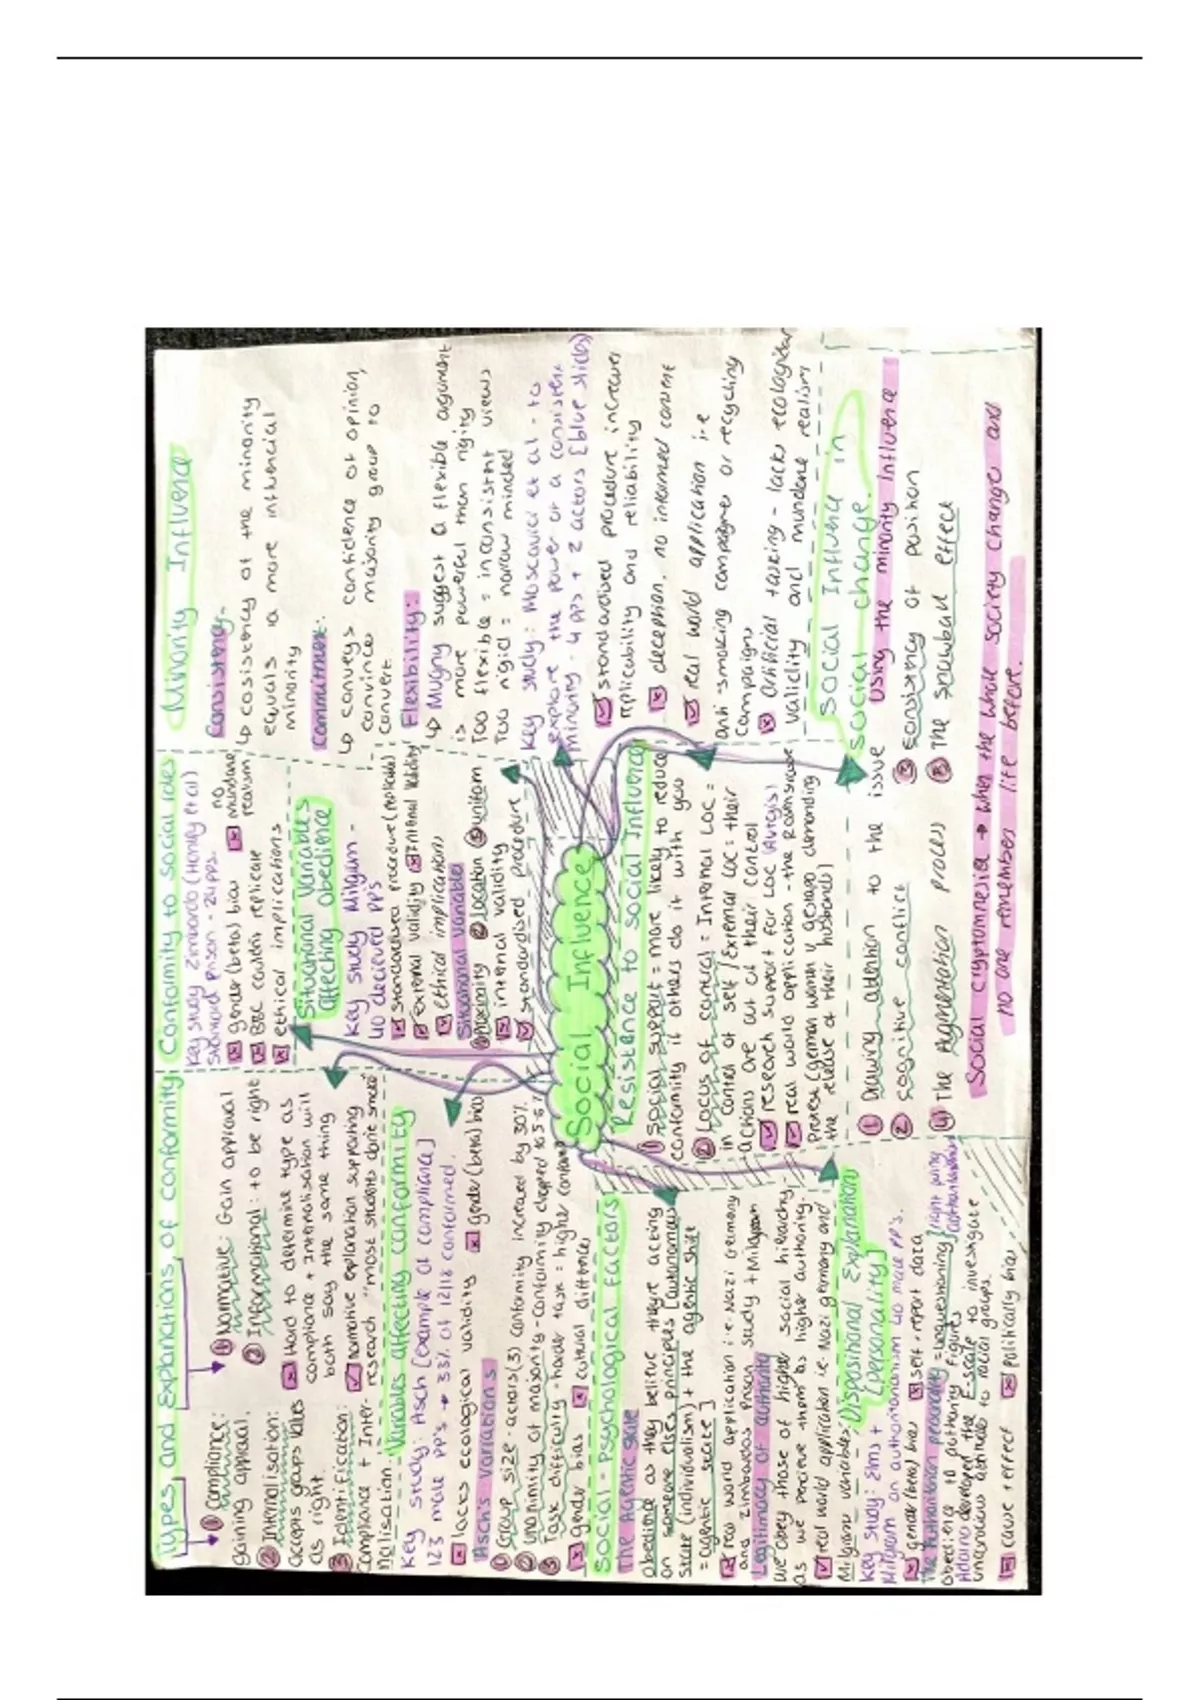 Types, and Explanations, of conformity
① Compliance:
gaining approval.
② Internalisation:
accepts groups values
as right.
③ Identification:
Compliance + Inter-
nalisation.
① Normative: Gain approval
② Informational: to be right
Hard to determine type as
compliance + internalisation will
both say the same thing
normative explanation supporting
research "most students
Variables affecting conformity
Key study: Asch [example of compliance]
123 male PP's → 33% of 12/18 conformed.
lacks ecological validity
gender (beta) bias
Asch's variations
① Group size - actors(3) conformity increased by 30%.
② Unanimity of majority - conformity dropped to 5.6%
③ Task difficulty - harder task = higher conformity
gender bias
cultural differences
Conformity to social roles
Key study Zimbardo (Haney et al)
Stanford prison - 24 pps.
gender (beta) bias
no mundane realism
BBC couldn't replicate
ethical implications
Situational Variables affecting obedience
Key study Milgram -
40 decieved PP's
standardised procedure (replicable)
external validity
internal validity
ethical implications
Situational variables
① proximity ② location ③ uniform
internal validity
standardised procedure
Minority Influence
Consistency-
↳ cosistency of the minority
equals a more influencial
minority
Commitment:
↳ conveys confidence of opinion,
convinces majority group to
convert.
Flexibility:
↳ Mugny suggest a flexible argument
is more powerful than rigity
Too flexible = inconsistent views
Too rigid = narrow minded
Key study: Moscovici et al - to
explore the power of a consistent
minority - 4 pps + 2 actors [blue slides]
standardised procedure increases
replicability and reliability
deception, no informed consent
real world application i.e
anti smoking campaigns or recycling
campaigns
artificial tasking - lacks ecological
validity and mundane realism
Social Influence
Social - Psychological factors
The Agentic state
obedience as they believe they're acting
on someone else's principles [autonomous
state (individualism) + the agentic shift
= agentic state]
real world application i.e. Nazi Germany
and Zimbardos Prison study + Milgram
Legitimacy of authority
we obey those of higher social hierarchy
as we percieve them as higher authority.
real world application i.e. Nazi germany and
Milgrams variables.
Dispositional Explanation
[personality]
Key study: Elms +
Milgram on authoritarianism 40 male PP's.
gender (beta) bias
self-report data
The Authoritarian personality - unquestioning
obedience to authority figures
right wing authoritarianism
Adorno developed the F-scale to investigate
unconscious attitudes to racial groups.
cause + effect
politically bias
Resistence to social Influence
① Social support = more likely to reduce
conformity if others do it with you
② Locus of control = Internal LOC =
in control of self / External LOC = their
actions are out of their control
research support for LOC (Avtgis)
real world application - the Rosenstrasse
Protest (german women v gestapo demanding
the release of their husbands)
Social Influence in
social change.
Using the minority influence
① Drawing attention to the issue
② cognitive conflict
③ consistency of position
④ The Augmentation process
⑤ The snowball effect
Social cryptomnesia → when the whole society change and
no one remembers life before.